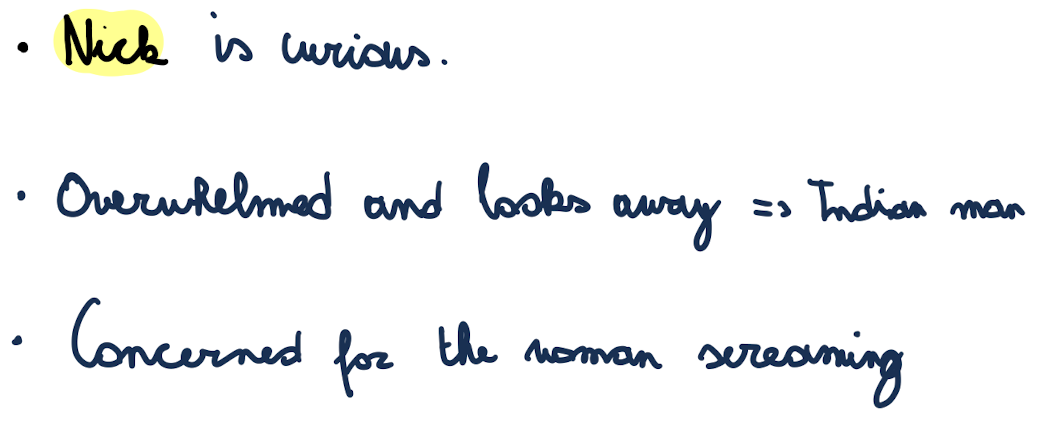 • Nick is curious.
• Overwhelmed and looks away => Indian man
• Concerned for the woman screaming